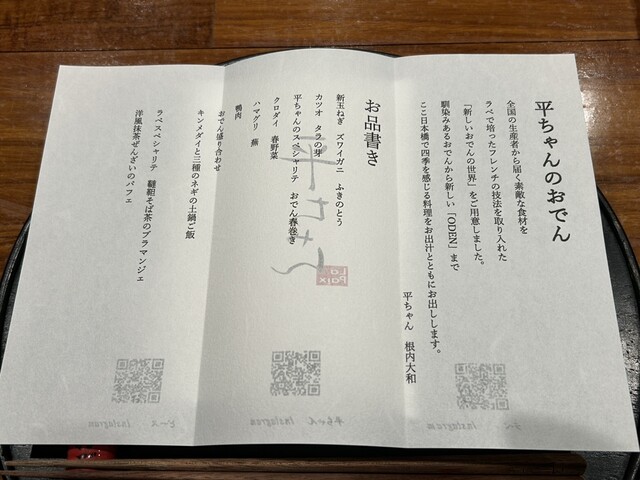 平ちゃんのおでん
全国の生産者から届く素敵な食材を
ラペで培ったフレンチの技法を取り入れた
「新しいおでんの世界」をご用意しました。
馴染みあるおでんから新しい「ODEN」まで
ここ日本橋で四季を感じる料理をお出汁とともにお出しします。
平ちゃん 根内大和
お品書き
新玉ねぎ ズワイガニ ふきのとう
カツオ タラの芽
平ちゃんのスペシャリテ おでん春巻き
クロダイ 春野菜
ハマグリ 蕪
鴨肉
おでん盛り合わせ
キンメダイと三種のネギの土鍋ご飯
ラペスペシャリテ 韃靼そば茶のブランマンジェ
洋風抹茶ぜんざいのパフェ
平ちゃん
La Paix
ラペ Instagram
平ちゃん Instagram
ピース Instagram